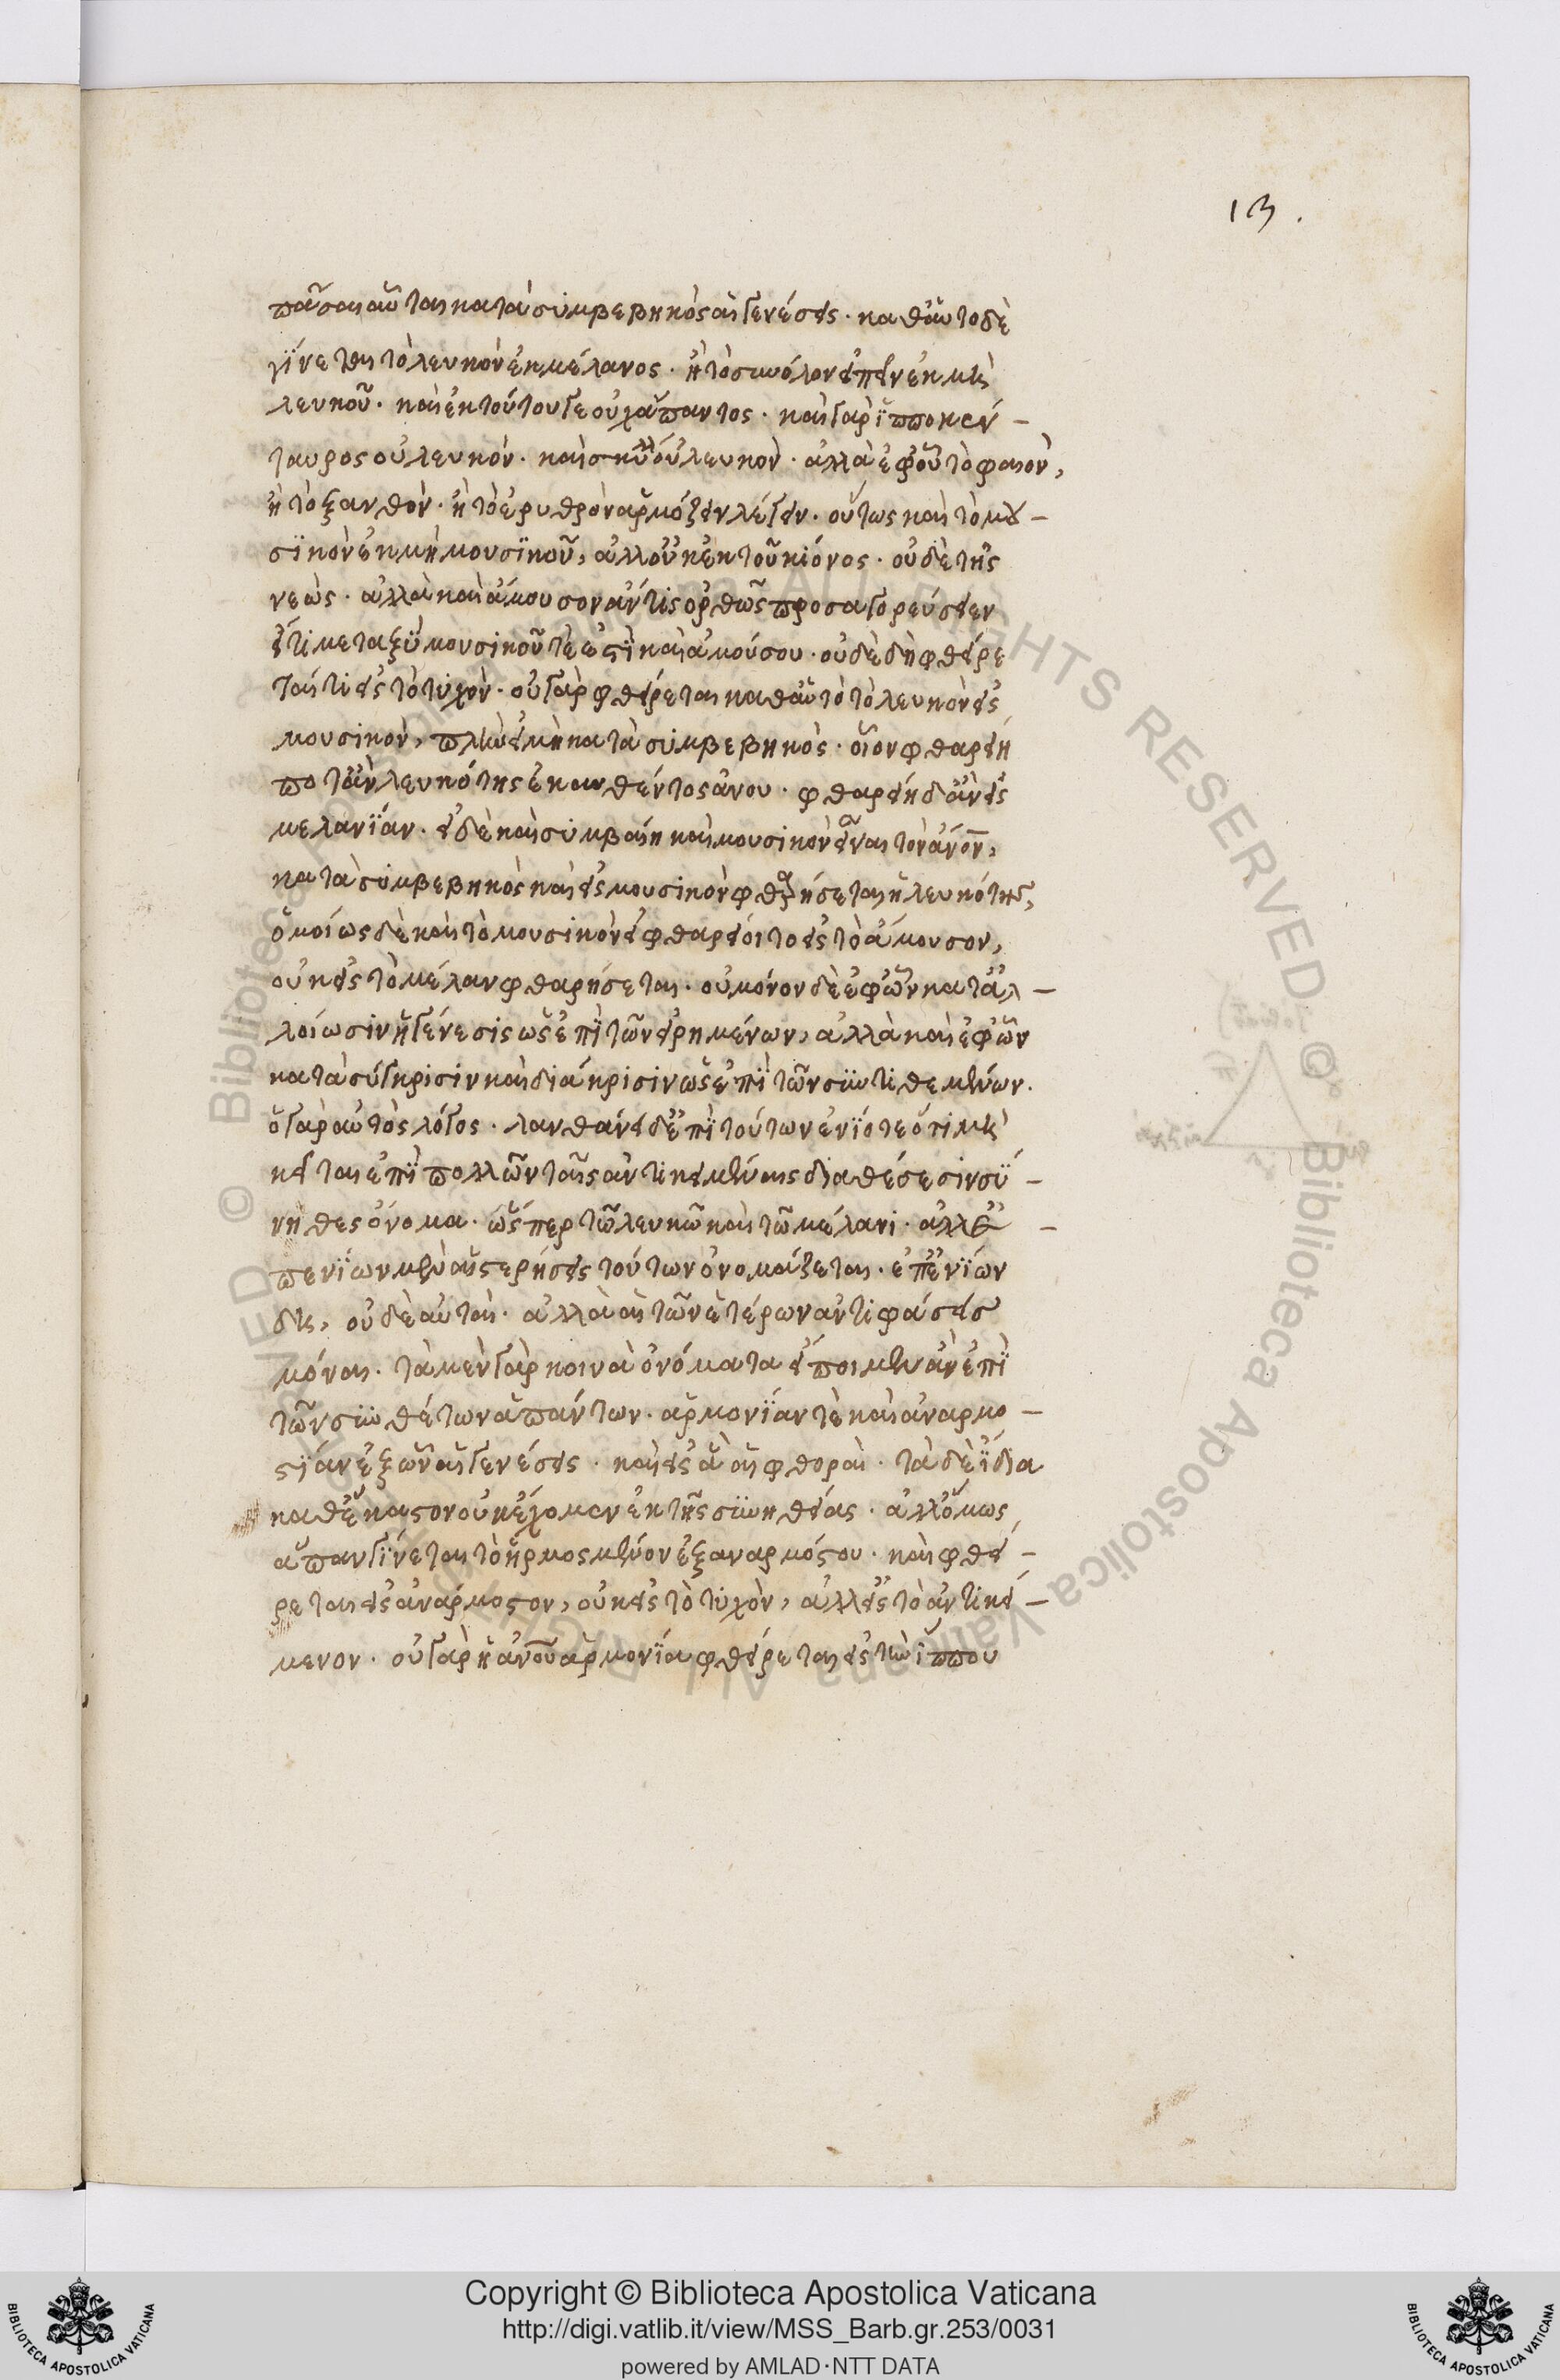 13.
πᾶσαι αὗται κατὰ συμβεβηκὸς αἱ γενέσεις. καθ' αὑτὸ δὲ
γίνεται τὸ λευκὸν ἐκ μέλανος. ἢ τὸ συνόλον εἰπεῖν ἐκ μὴ
λευκοῦ. καὶ ἐκ τούτου γε οὐχ ἅπαντος. καὶ γὰρ ἱπποκέν-
ταυρος οὐ λευκόν. καὶ σκύλλ οὐ λευκὸν. ἀλλὰ ἐφ' οὗ τὸ φαιὸν,
ἢ τὸ ξανθὸν. ἢ τὸ ἐρυθρὸν ἁρμόζει λέγειν. οὕτως καὶ τὸ μου-
σϊκὸν ἐκ μὴ μουσϊκοῦ, ἀλλ' οὐκ ἐκ τοῦ κιόνος. οὐδὲ τῆς
νεὼς. ἀλλὰ καὶ ἄμουσον ἄν τις ὀρθῶς προσαγορεύσειεν
εἴ τι μεταξὺ μουσικοῦ τὲ ἐστὶ καὶ ἀμούσου. οὐδὲ δὴ φθείρε
ταί τι εἰς τὸ τυχὸν. οὐ γὰρ φθείρεται καθ' αὑτὸ τὸ λευκὸν εἰς
μουσικόν, πλὴν εἰ μὴ κατὰ συμβεβηκὸς. οἷον φθαρείη
ποτ' ἂν λευκότης ἐκκαυθέντος ἀνου. φθαρείη δ' ἂν εἰς
μελανϊάν. εἰ δὲ καὶ συμβαίη καὶ μουσικὸν εἶναι τὸν ἀνον,
κατὰ συμβεβηκὸς καὶ εἰς μουσικὸν φθαρήσεται ἡ λευκότης,
ὁμοίως δὲ καὶ τὸ μουσικὸν εἰ φθαρείοιτο εἰς τὸ ἄμουσον,
οὐκ εἰς τὸ μέλαν φθαρήσεται. οὐ μόνον δὲ ἐφ' ὧν κατ' ἀλ-
λοίωσιν ἡ γένεσις ὡς ἐπὶ τῶν εἰρημένων, ἀλλὰ καὶ ἐφ' ὧν
κατὰ σύγκρισιν καὶ διάκρισιν ὡς ἐπὶ τῶν συντιθεμένων.
ὁ γὰρ αὐτὸς λόγος. λανθάνει δ' ἐπὶ τούτων ἐνϊότε ὅτι μὴ
κεῖται ἐπὶ πολλῶν ταῖς ἀντικειμέναις διαθέσεσιν σύ-
νηθες ὄνομα. ὥσπερ τῶ λευκῶ καὶ τῶ μέλανι. ἀλλ' ἐ-
π' ἐνϊων μὲν αἱ στερήσεις τούτων ὀνομάζεται. ἐπ' ἐνϊων
δὲ, οὐδὲ αὐταὶ. ἀλλὰ αἱ τῶν ἑτέρων ἀντιφάσεισ
μόναι. τὰ μὲν γὰρ κοινὰ ὀνόματα εἴποιμεν ἂν ἐπὶ
τῶν συνθέτων ἁπάντων. ἁρμονϊάν τὲ καὶ ἀναρμο-
στϊάν ἐξ ὧν αἱ γενέσεις. καὶ εἰς ἃ αἱ φθοραὶ. τὰ δὲ ἴδια
καθ' ἕκαστον οὐκ ἔχομεν ἐκ τῆς συνηθείας. ἀλλ' ὅμως
ἅπαν γίνεται τὸ ἡρμοσμένον ἐξ αναρμόστου. καὶ φθεί-
ρεται εἰς ἀνάρμοστον, οὐκ εἰς τὸ τυχὸν, ἀλλ' εἰς τὸ ἀντικεί-
μενον. οὐ γὰρ ἡ ἀνου ἁρμονϊα φθείρεται εἰς τὴν ἵππου
Copyright © Biblioteca Apostolica Vaticana
http://digi.vatlib.it/view/MSS_Barb.gr.253/0031
powered by AMLAD·NTT DATA